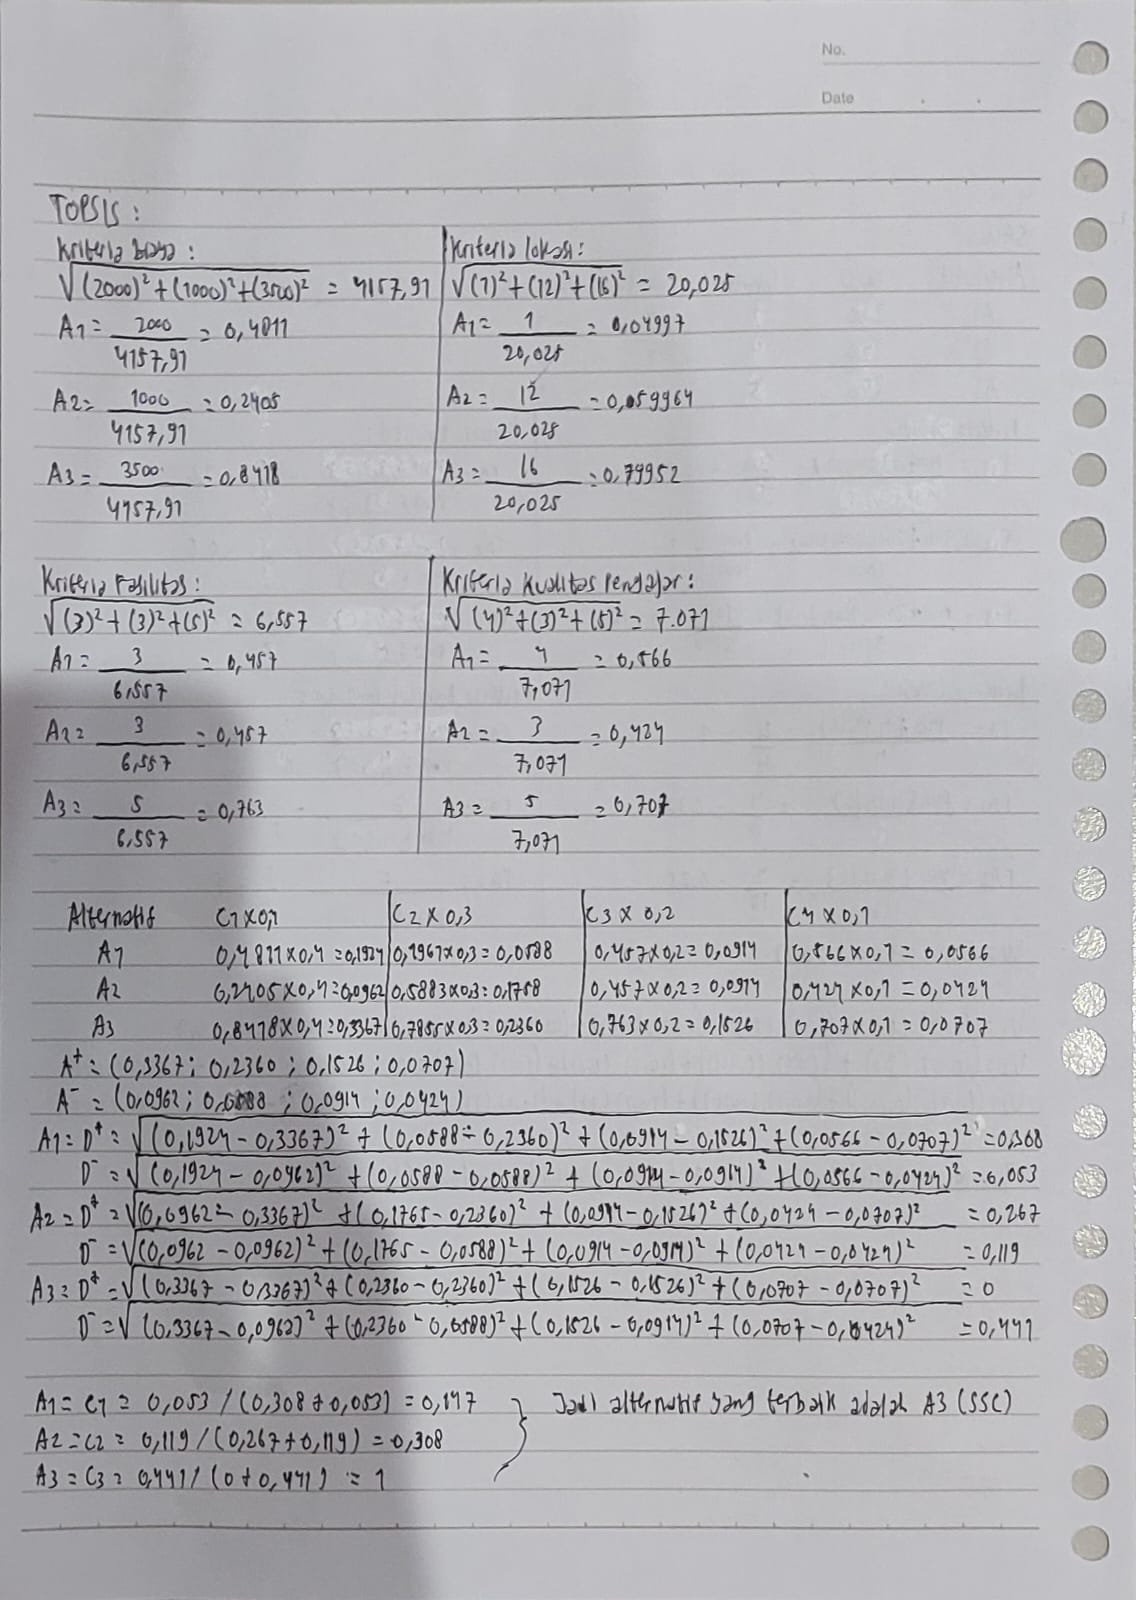 No.
Date
TOPSIS :
Kriteria biaya :
√(2000)² + (1000)² + (3500)² = 4157,91
A1 = 2000 / 4157,91 = 0,4811
A2 = 1000 / 4157,91 = 0,2405
A3 = 3500 / 4157,91 = 0,8418
Kriteria lokasi :
√(1)² + (12)² + (16)² = 20,025
A1 = 1 / 20,025 = 0,04997
A2 = 12 / 20,025 = 0,059964
A3 = 16 / 20,025 = 0,79952
Kriteria Fasilitas :
√(3)² + (3)² + (5)² = 6,557
A1 = 3 / 6,557 = 0,457
A2 = 3 / 6,557 = 0,457
A3 = 5 / 6,557 = 0,763
Kriteria Kualitas Pengajar :
√(4)² + (3)² + (5)² = 7.071
A1 = 4 / 7,071 = 0,566
A2 = 3 / 7,071 = 0,424
A3 = 5 / 7,071 = 0,707
Alternatif C1 x 0,1 C2 x 0,3 C3 x 0,2 C4 x 0,1
A1 0,4811 x 0,4 = 0,1924 0,1961 x 0,3 = 0,0588 0,457 x 0,2 = 0,0914 0,566 x 0,1 = 0,0566
A2 0,2405 x 0,4 = 0,0962 0,5883 x 0,3 = 0,1768 0,457 x 0,2 = 0,0914 0,424 x 0,1 = 0,0424
A3 0,8418 x 0,4 = 0,3367 0,7855 x 0,3 = 0,2360 0,763 x 0,2 = 0,1526 0,707 x 0,1 = 0,0707
A⁺ = (0,3367 ; 0,2360 ; 0,1526 ; 0,0707)
A⁻ = (0,0962 ; 0,0588 ; 0,0914 ; 0,0424)
A1 = D⁺ = √(0,1924 - 0,3367)² + (0,0588 - 0,2360)² + (0,0914 - 0,1526)² + (0,0566 - 0,0707)² = 0,308
D⁻ = √(0,1924 - 0,0962)² + (0,0588 - 0,0588)² + (0,0914 - 0,0914)² + (0,0566 - 0,0424)² = 0,053
A2 = D⁺ = √(0,0962 - 0,3367)² + (0,1765 - 0,2360)² + (0,0914 - 0,1526)² + (0,0424 - 0,0707)² = 0,267
D⁻ = √(0,0962 - 0,0962)² + (0,1765 - 0,0588)² + (0,0914 - 0,0914)² + (0,0424 - 0,0424)² = 0,119
A3 = D⁺ = √(0,3367 - 0,3367)² + (0,2360 - 0,2360)² + (0,1526 - 0,1526)² + (0,0707 - 0,0707)² = 0
D⁻ = √(0,3367 - 0,0962)² + (0,2360 - 0,0588)² + (0,1526 - 0,0914)² + (0,0707 - 0,0424)² = 0,441
A1 = C1 = 0,053 / (0,308 + 0,053) = 0,147
A2 = C2 = 0,119 / (0,267 + 0,119) = 0,308
A3 = C3 = 0,441 / (0 + 0,441) = 1
Jadi alternatif yang terbaik adalah A3 (SSC)